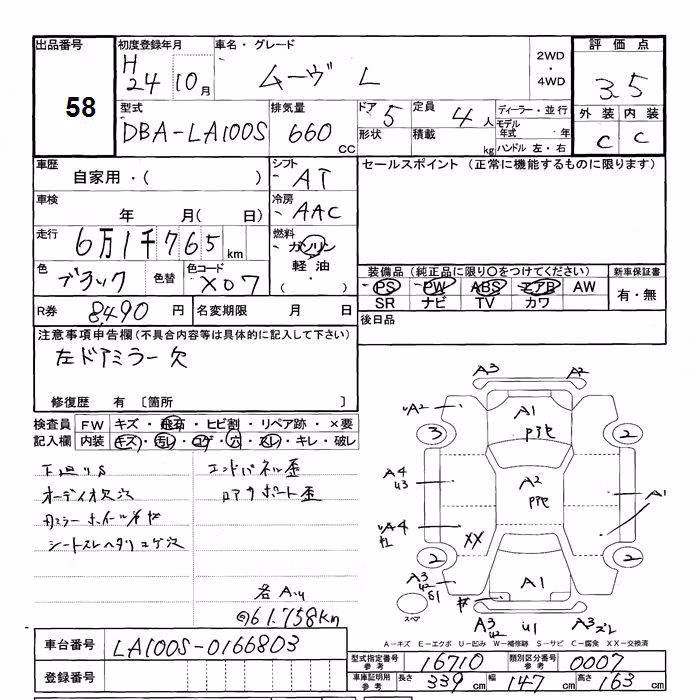 出品番号 初度登録年月 車名・グレード 2WD ・ 4WD 評価点
58 H24 10月 ムーヴ L 3.5
型式 排気量 ドア 5 定員 4人 ディーラー・並行 外装 内装
DBA-LA100S 660cc 形状 積載 kg モデル年式 年 C C
ハンドル 左・右
車歴 自家用・( ) シフト AT セールスポイント (正常に機能するものに限ります)
車検 年 月( 日) 冷房 AAC
走行 6万1千765km 燃料 ガソリン
軽油
・( )
色 ブラック 色替 色コード X07 装備品(純正品に限り○をつけてください) 新車保証書
PS PW ABS エアB AW 有・無
SR ナビ TV カワ
R券 8,490円 名変期限 月 日 後日品
注意事項申告欄(不具合内容等は具体的に記入して下さい)
左ドアミラー欠
修復歴 有 〔箇所 〕
検査員 FW キズ・飛石・ヒビ割・リペア跡・×要
記入欄 内装 キズ・汚レ・コゲ・穴・スレ・キレ・破レ
下廻りS エンドパネル歪
オーディオ欠穴 リアサポート歪
シートスレヘタリコゲ穴
各AU
◎61.758km
A3 A2
UA2 A1
3 2
A4 U3 A2
UA4 XX A1
2 2
A3 U2 S1 A1
スペア A3 U2 U1 A3 ズレ
A-キズ E-エクボ U-凹み W-補修跡 S-サビ C-腐食 XX-交換済
車台番号 LA100S-0166803
登録番号
型式指定番号 参考 16710 類別区分番号 参考 0007
車庫証明用 参考 長さ 339cm 幅 147cm 高さ 163cm